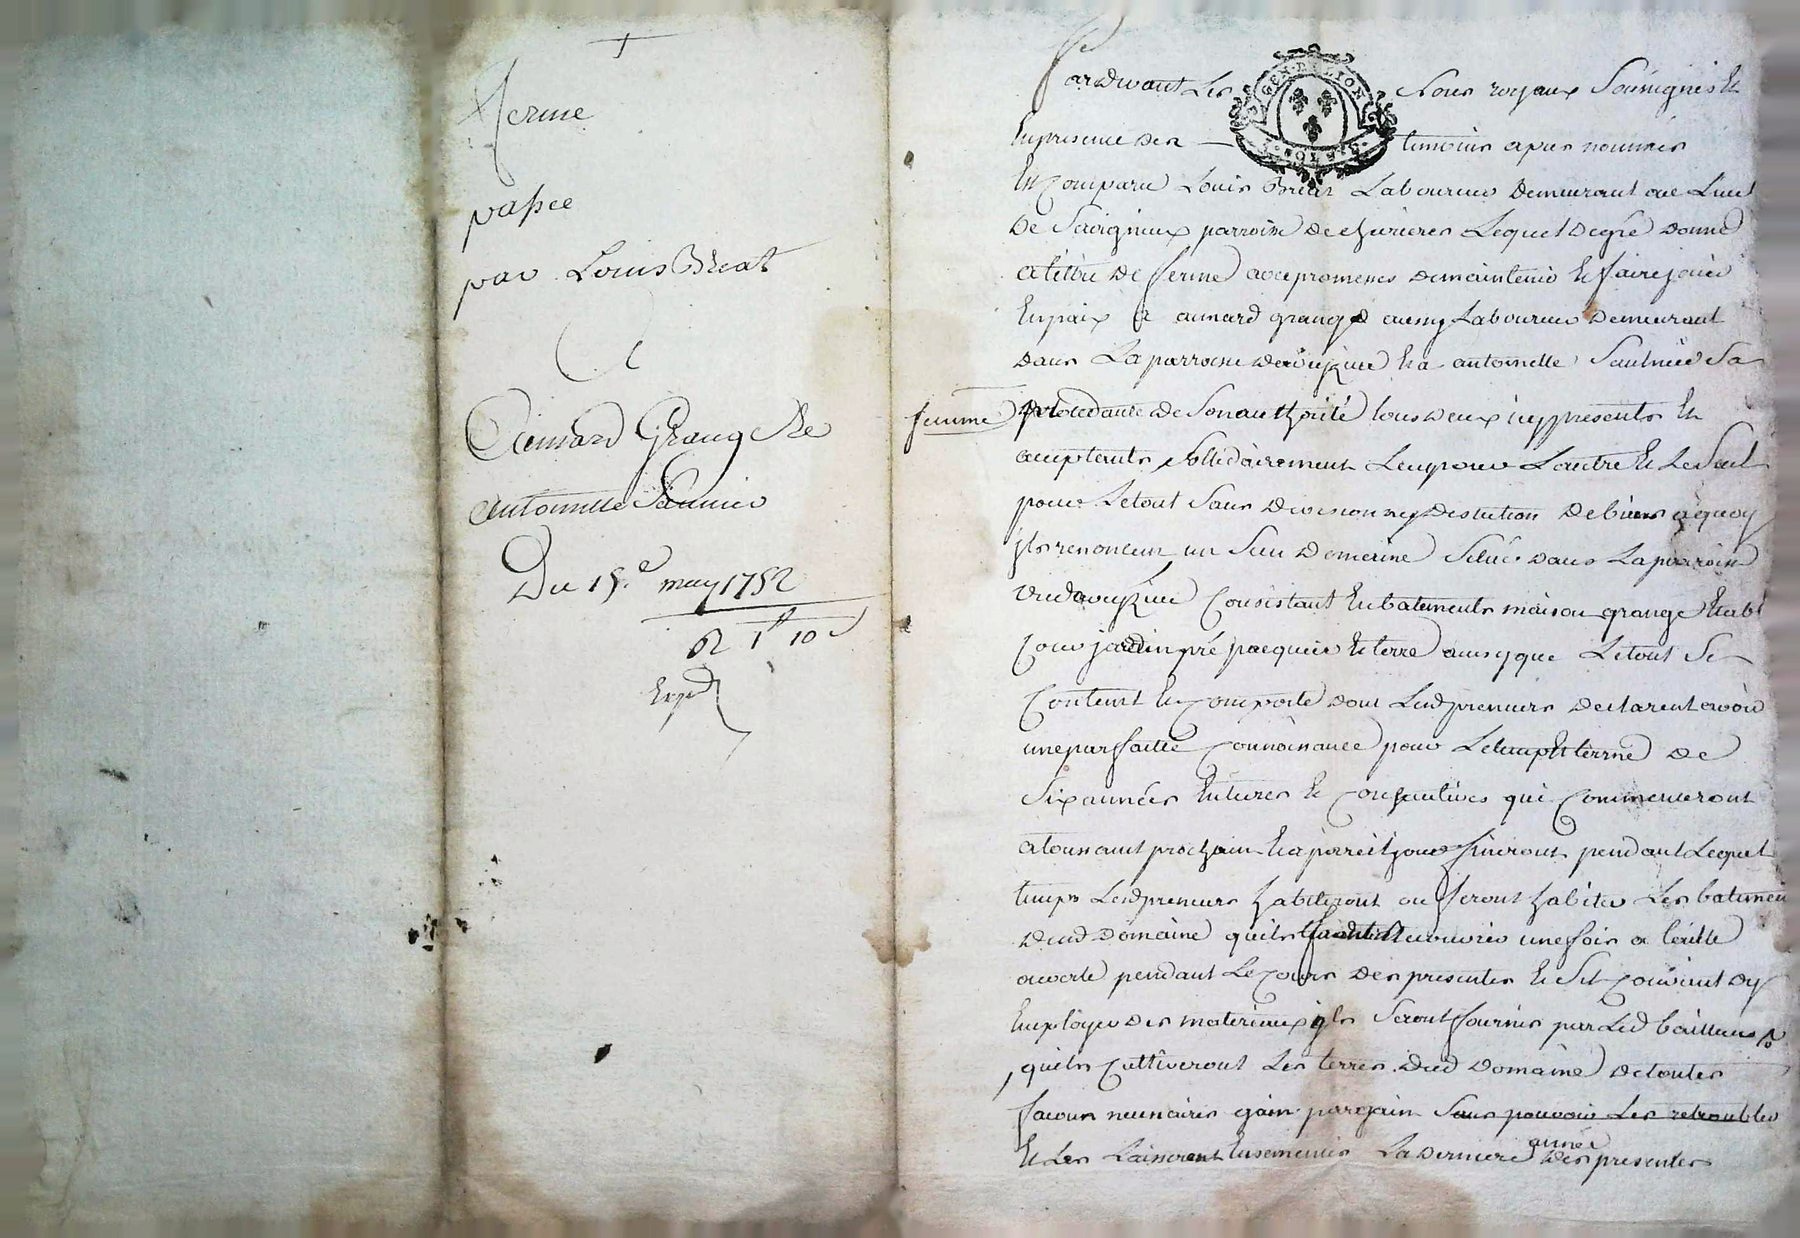 ferme
passée
par Louis Breat
A
Aimard Grange &
Antoinette Saunier
Du 15.e may 1752
R 1ll 10 s
Expd
GEN. D. LION
Pardevant Les Nores royaux Soussignés &
En presence des temoins apres nommés
Est Comparu Louis Breat Laboureur Demeurant au Lieu
De Savigneux parroisse de chevrieres Lequel De gré donne
a tittre De ferme avec promesses de maintenir & faire jouir
En paix a aimard grange aussy Laboureur Demeurant
dans La parroisse & a antoinette Saulnier Sa
femme procedante de Son authorité tous deux icy presents &
acceptants Sollidairement L'un pour L'autre & Le Seul
pour Le tout Sans division ny discution De biens a quoy
jls renoncent un Sien Domeine Scitué dans La parroisse
Consistant En batiments maison grange Etable
Cour jardin pré pasquier & terre ainsy que Le tout Se
Contient & Comporte dont Lesd preneurs declarent avoir
une parfaitte Connoissance pour Le temps & terme de
Six années Entieres & Consecutives qui Commenceront
a toussaint prochain & a pareil jour finiront pendant Lequel
temps Lesd preneurs habiteront ou feront habiter Les batimen
Dud Domaine qu'ils recouvrir une fois a taille
ouverte pendant Le Cours des presentes & S'il Convient d'y
Employer des materiaux jls Seront fournis par Led bailleur
qu'ils Cultiveront Les terres Dud Domaine de toutes
facons necessaires gain par gain Sans pouvoir Les retroubler
& Les Laisseront Ensemencés La derniere année des presentes